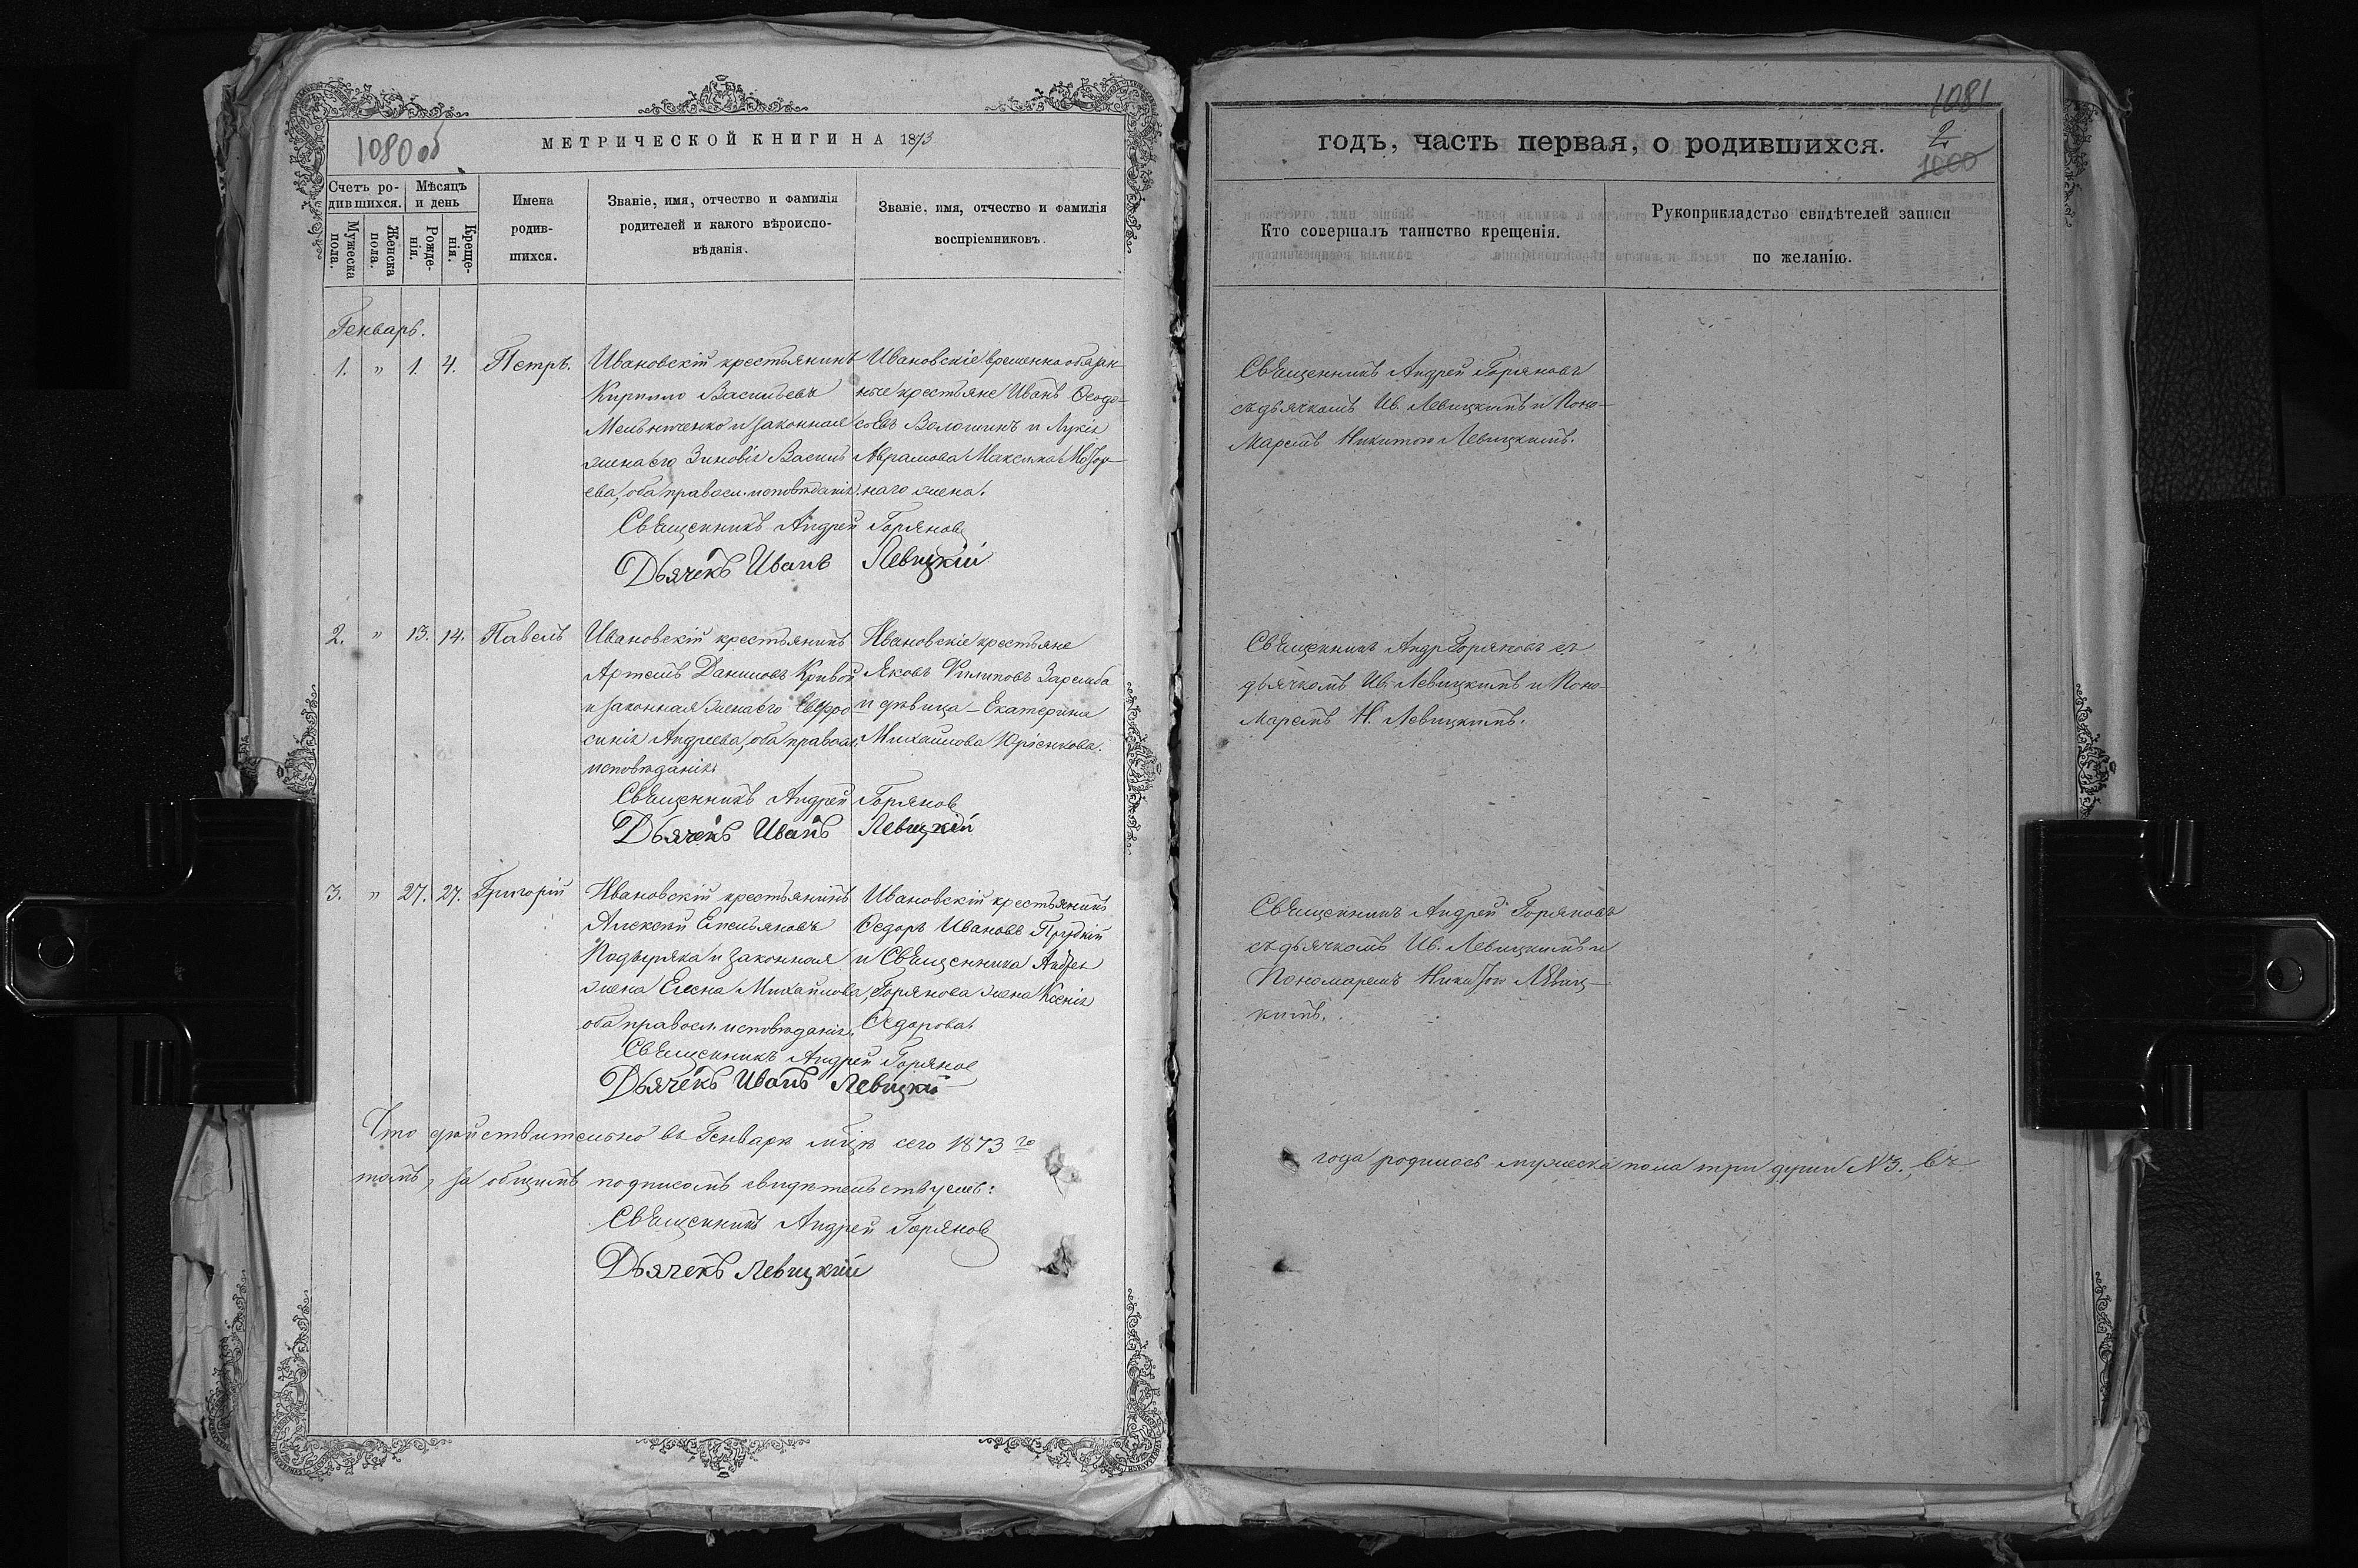 1080 об
МЕТРИЧЕСКОЙ КНИГИ НА 1873
Счетъ ро-
дившихся.
Мѣсяцъ
и день
Мужеска
пола.
Женска
пола.
Рожде-
нія.
Креще-
нія.
Имена
родив-
шихся.
Званіе, имя, отчество и фамилія
родителей и какого вѣроиспо-
вѣданія.
Званіе, имя, отчество и фамилія
воспріемниковъ.
Генварь.
1. " 1. 4. Петръ.
Ивановскій крестьянинъ
Кирилло Васильевъ
и законная
жена его Зиновія Василь
ева, оба правосл. исповѣданія.
Ивановскіе временнообязан-
ные крестьяне Иванъ Ѳеодо-
сіевъ Волошинъ и Лукія
Аврамова Максима
наго жена.
Священникъ Андрей Горяновъ
Дьячекъ Иванъ Левицкій
2. " 13. 14. Павелъ
Ивановскій крестьянинъ
Артемъ Даниловъ Кривой
и законная жена его Евфро-
синія Андреева, оба правосл.
исповѣданія.
Ивановскіе крестьяне
Яковъ Филиповъ Заремба
и дѣвица – Екатерина
Михайлова Юрченкова.
Священникъ Андрей Горяновъ
Дьячекъ Иванъ Левицкій
3. " 27. 27. Григорій
Ивановскій крестьянинъ
Алексѣй Емельяновъ
и законная
жена Елена Михайлова,
оба правосл. исповѣданія.
Ивановскій крестьянинъ
Ѳедоръ Ивановъ
и Священника Андрея
Горянова жена Ксенія
Ѳедорова.
Священникъ Андрей Горяновъ
Дьячекъ Иванъ Левицкій
Что дѣйствительно въ Генварѣ мцѣ сего 1873 го
томъ, за общимъ подписомъ свидѣтельствуемъ:
Священникъ Андрей Горяновъ
Дьячекъ Левицкій
1081
2
1000
годъ, часть первая, о родившихся.
Кто совершалъ таинство крещенія.
Рукоприкладство свидѣтелей записи
по желанію.
Священникъ Андрей Горяновъ
съ дьячкомъ Ив. Левицкимъ и Поно-
маремъ Никитою Левицкимъ.
Священникъ Андр. Горяновъ съ
дьячкомъ Ив. Левицкимъ и Поно-
маремъ Н. Левицкимъ.
Священникъ Андрей Горяновъ
съ дьячкомъ Ив. Левицкимъ и
Пономаремъ Никитою Левиц-
кимъ.
года родилось мужеска пола три души № 3., въ